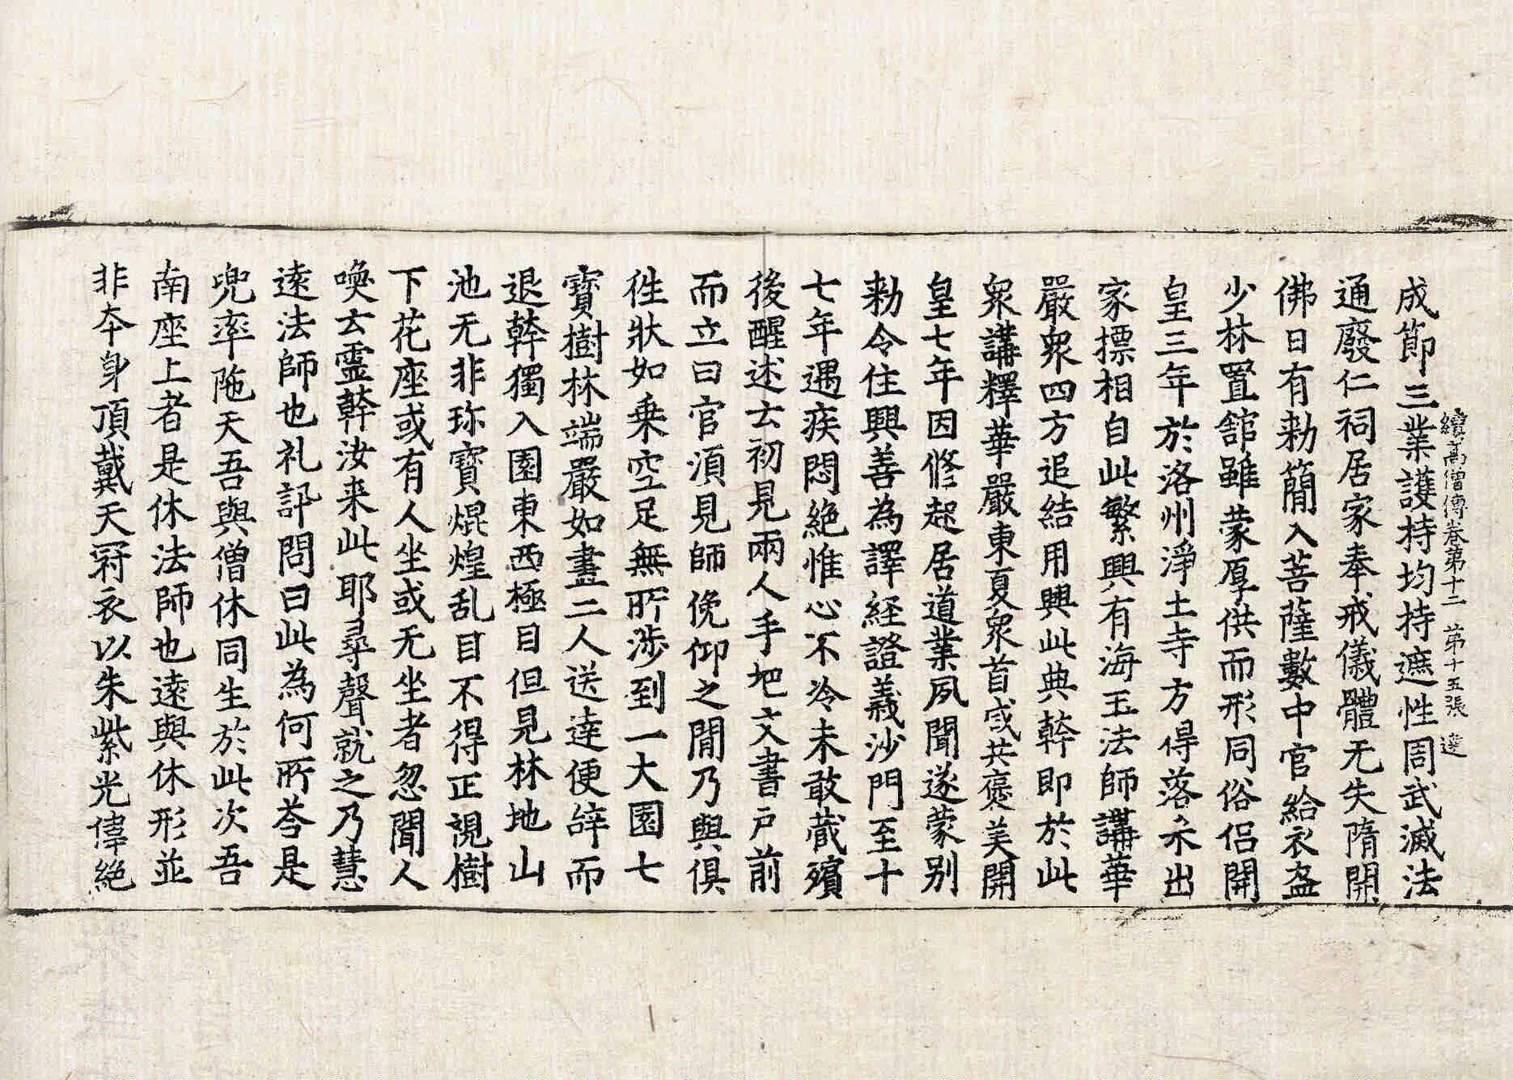 成節三業護持均持遮性周武滅法
續高僧傳卷第十二 第十五張 達
通廢仁祠居家奉戒儀體无失隋開
佛日有勑簡入菩薩數中官給衣盔
少林置舘雖蒙厚供而形同俗侣開
皇三年於洛州淨土寺方得落釆出
家摽相自此繁興有海玉法師講華
嚴衆四方追結用興此典幹即於此
衆講釋華嚴東夏衆首咸共襃美開
皇七年因修起居道業夙聞遂蒙别
勑令住興善為譯經證義沙門至十
七年遇疾悶絶惟心不冷未敢藏殯
後醒述云初見兩人手把文書戸前
而立曰官湏見師俛仰之間乃與俱
徃狀如乗空足無所渉到一大園七
寶樹林端嚴如畫二人送達便辞而
退幹獨入園東西極目但見林地山
池无非珎寶焜煌乱目不得正視樹
下花座或有人坐或无坐者忽聞人
喚云靈幹汝来此耶尋聲就之乃慧
遠法師也礼訊問曰此為何所荅是
兜率陁天吾與僧休同生於此次吾
南座上者是休法師也遠與休形並
非本身頂戴天冠衣以朱紫光偉絶